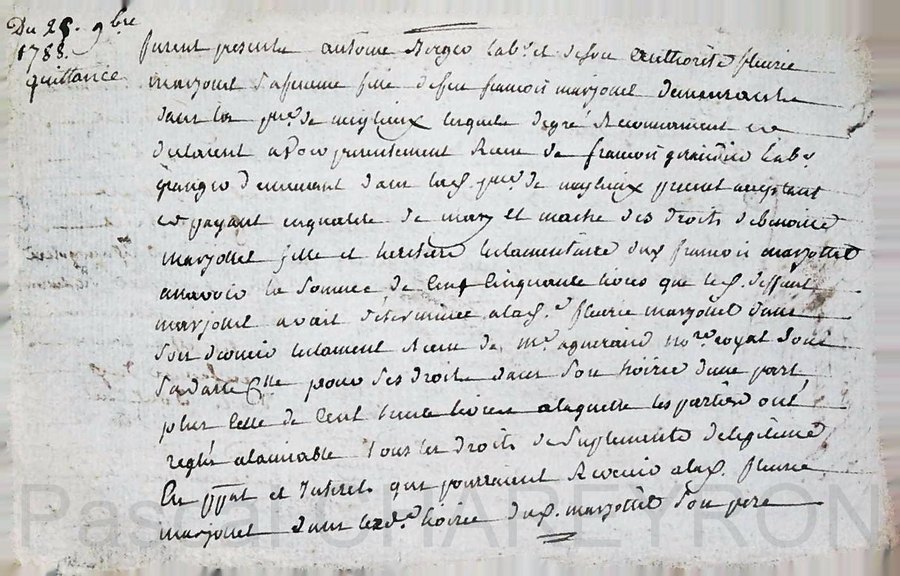 Du 25. 9bre
1788.
quittance
furent presents antoine Berger lab.r et de son authorité fleurie
marjollet sa femme fille de feu francois marjollet demeurants
dans la p.se de lesquels de gré reconnaissent et
declarent avoir presentement Receu de francois lab.r
granger demeurant dans lad. p.se de present acceptant
et payant en qualité de mary et maitre des droits de benoite
marjollet fille et heritiere testamentaire dud. francois marjollet
a savoir la Somme de Cent Cinquante livres que led. deffunt
marjollet avait déterminée a lad. fleurie marjollet dans
son dernier testament Receu de m.e agueraud no.re royal sous
Sa datte pour ses droits dans Son hoirie d'une part
plus Celle de Cent trente livres a laquelle les parties ont
reglés a l'amiable tous les droits de Suplements de legitime
En p.pal et Interets qui pourraient Revenir a lad. fleurie
marjollet dans la hoirie dud. marjollet Son pere
Pascal CHAPEYRON